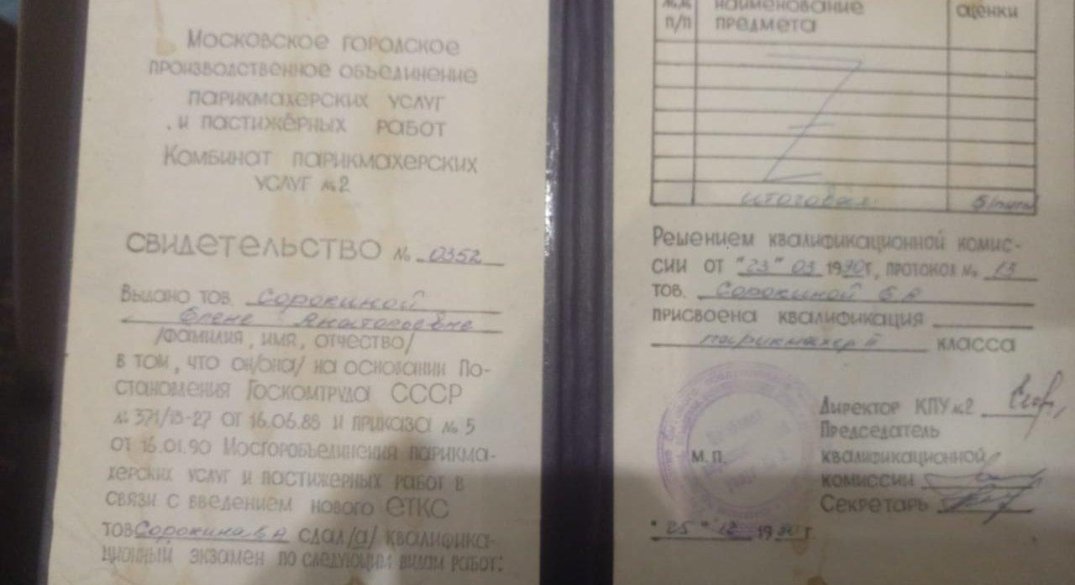 Московское городское
производственное объединение
парикмахерских услуг
и постижёрных работ
Комбинат парикмахерских
услуг №2
Свидетельство № 0352
Выдано тов. Сорокиной
Елене Анатольевне
/фамилия, имя, отчество/
в том, что он/она/ на основании По-
становления Госкомтруда СССР
от 16.06.88 и приказа №5
от 16.01.90 Мосгоробъединения парикма-
херских услуг и постижерных работ в
связи с введением нового ЕТКС
тов Сорокина Е А сдал/а/ квалифика-
ционный экзамен по следующим видам работ:
№№ наименование оценки
п/п предмета
итоговая 5
Решением квалификационной комис-
сии от "23" 03 1990г, протокол № 13
тов. Сорокиной Е А
присвоена квалификация
парикмахер II класса
Директор КПУ №2
Председатель
М.П. квалификационной
комиссии
Секретарь
"25" 12 1990г